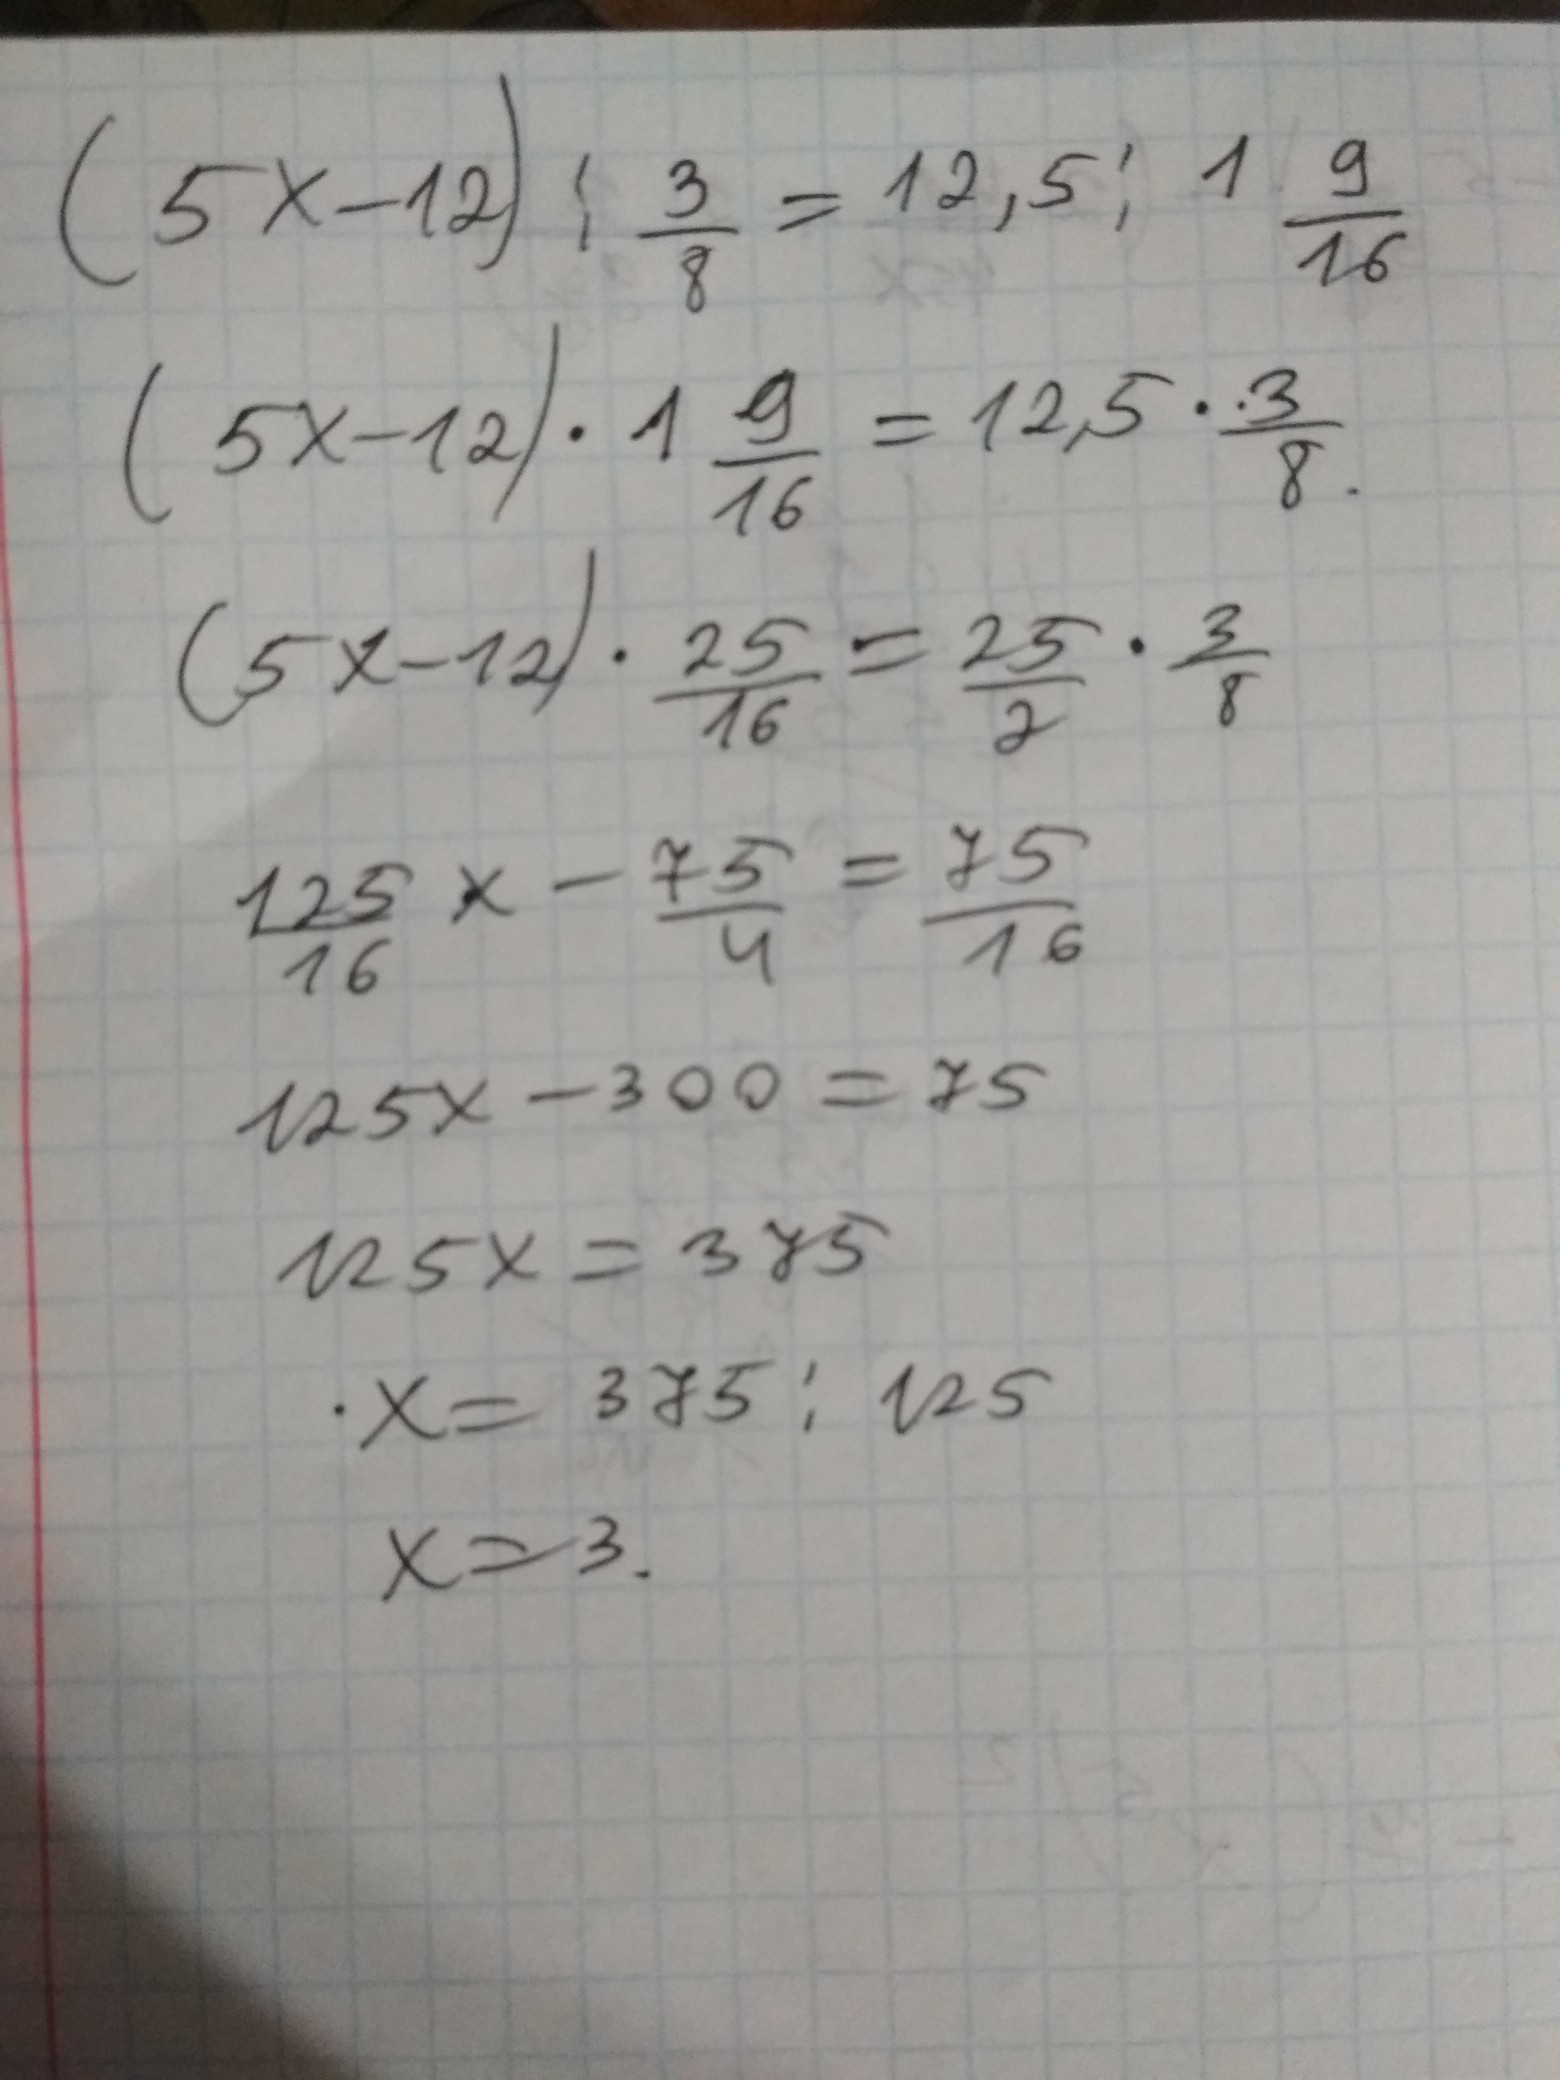 (5x-12) : 3/8 = 12,5 : 1 9/16
(5x-12) · 1 9/16 = 12,5 · 3/8.
(5x-12) · 25/16 = 25/2 · 3/8
125/16 x - 75/4 = 75/16
125x - 300 = 75
125x = 375
x = 375 : 125
x = 3.